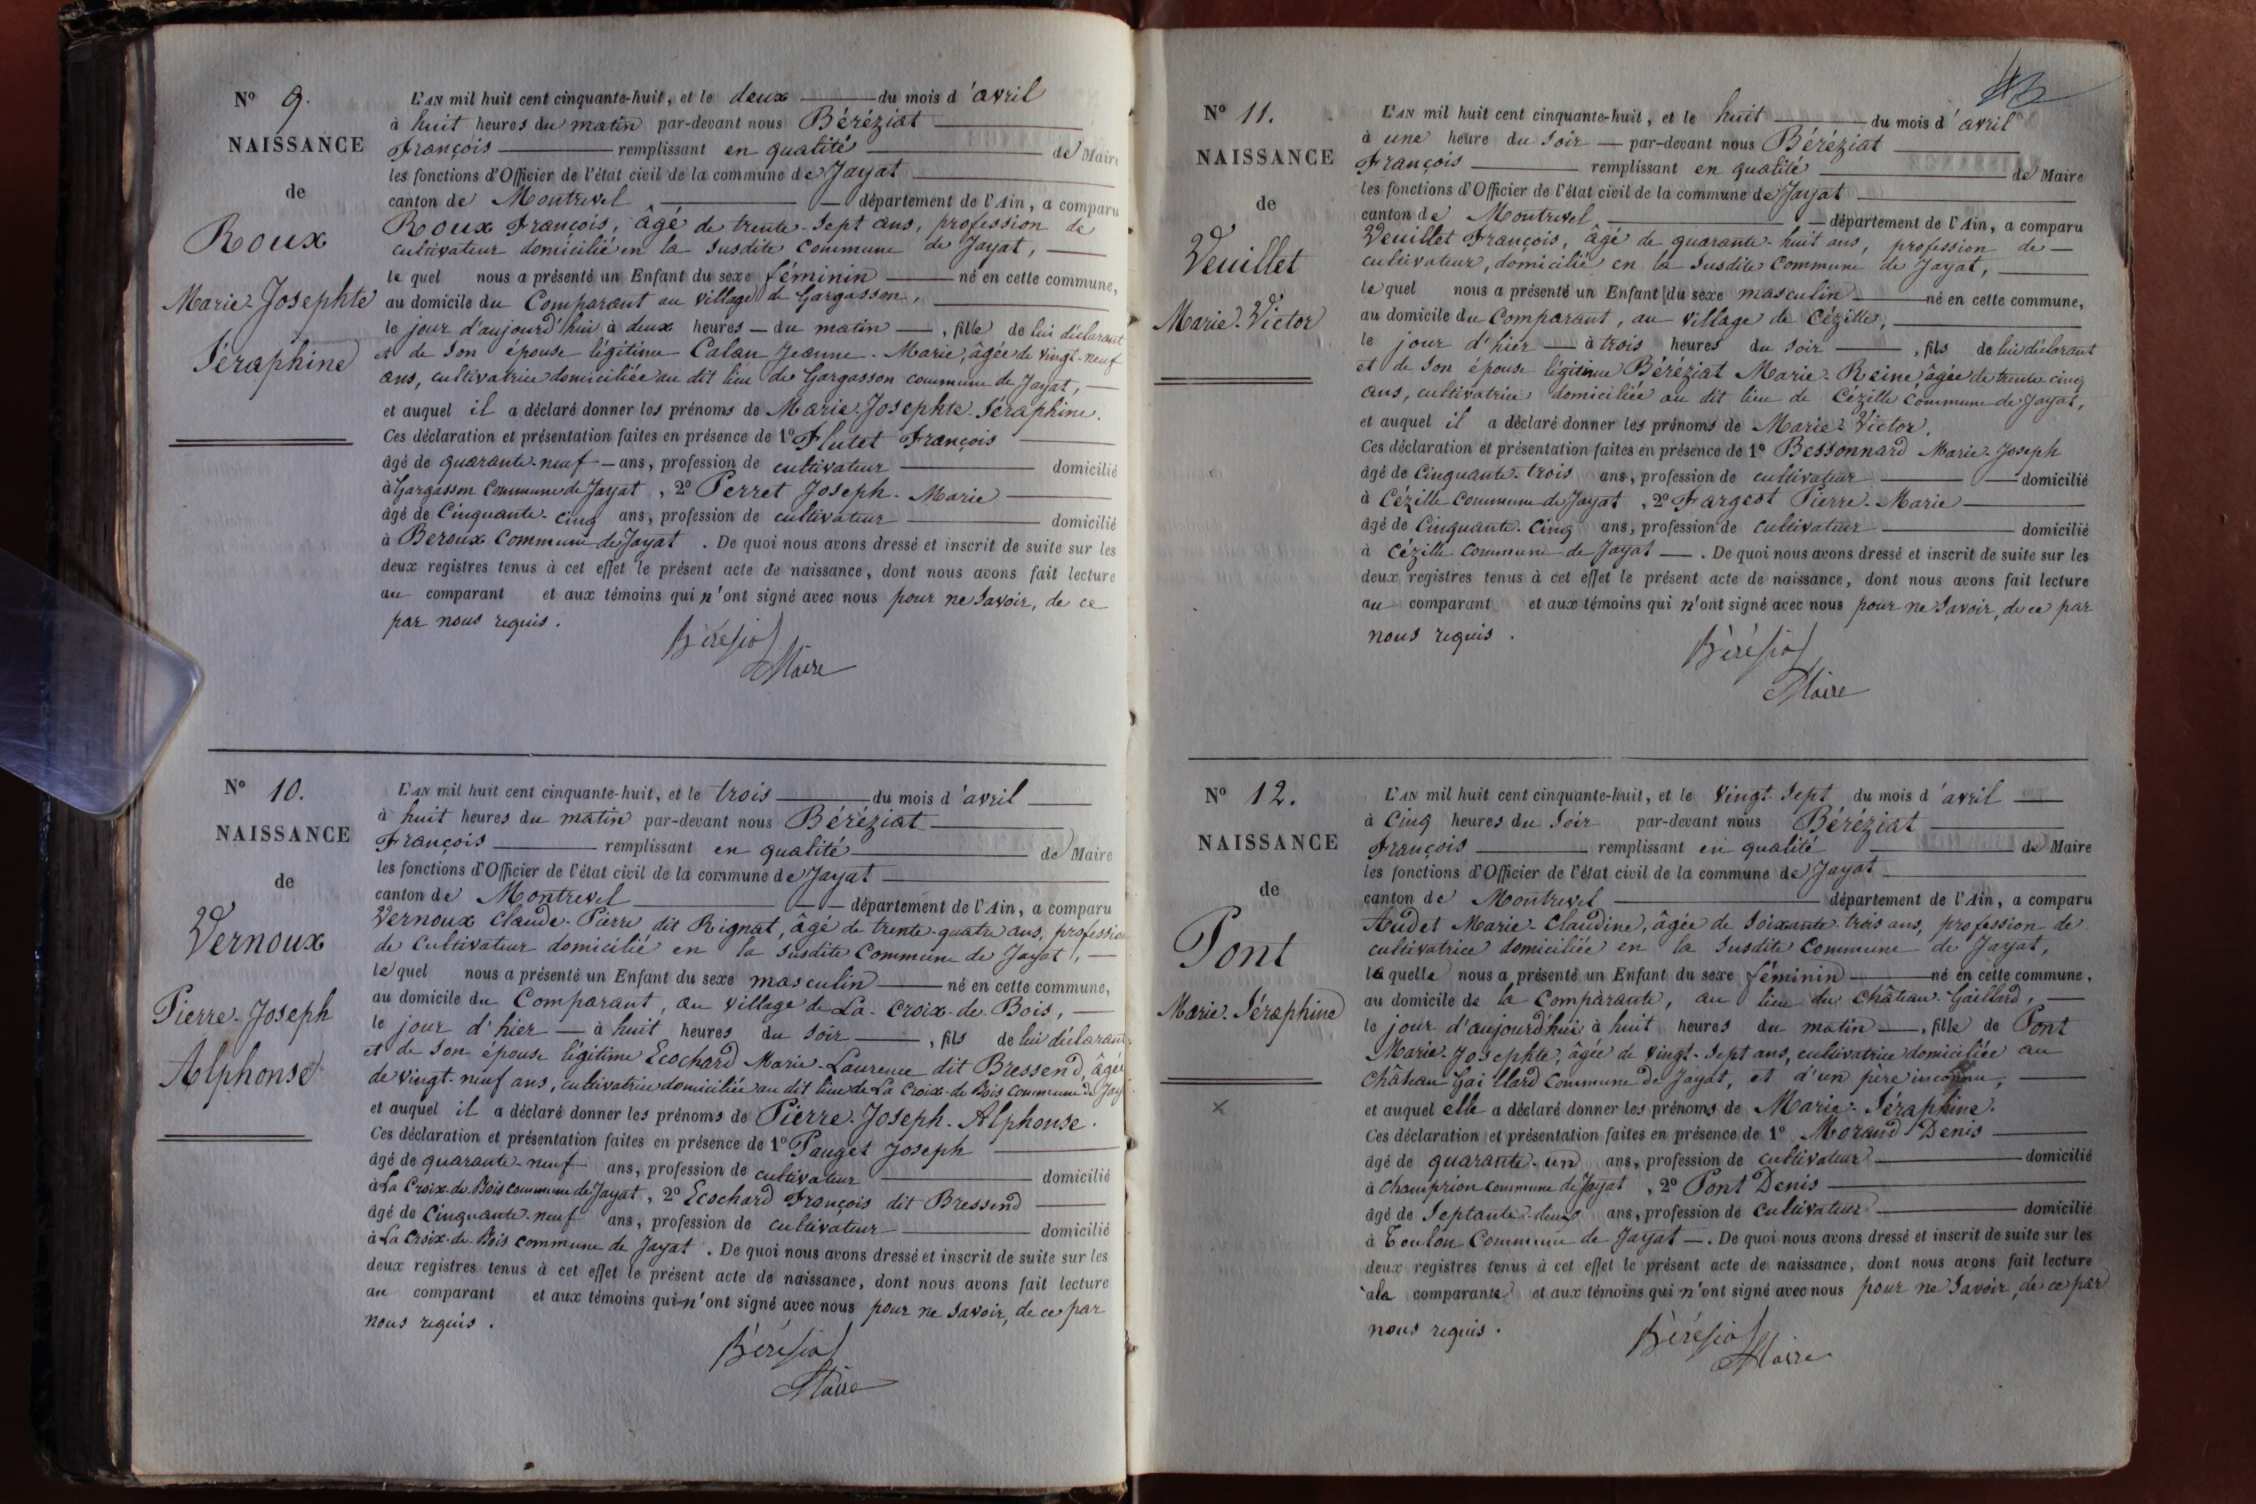 N° 9.
NAISSANCE
de
Roux
Marie-Josephte
Séraphine
L'AN mil huit cent cinquante-huit, et le deux du mois d'avril
à huit heures du matin par-devant nous Béréziat
François remplissant en qualité de Maire
les fonctions d'Officier de l'état civil de la commune de Jayat
canton de Montrevel département de l'Ain, a comparu
Roux François, âgé de trente-sept ans, profession de
cultivateur domicilié en la susdite Commune de Jayat,
le quel nous a présenté un Enfant du sexe féminin né en cette commune,
au domicile du Comparant au village de Gargasson,
le jour d'aujourd'hui à deux heures du matin, fille de lui déclarant
et de son épouse légitime Calan Jeanne-Marie, âgée de vingt-neuf
ans, cultivatrice domiciliée au dit lieu de Gargasson commune de Jayat,
et auquel il a déclaré donner les prénoms de Marie-Josephte-Séraphine.
Ces déclaration et présentation faites en présence de 1° Flutet François
âgé de quarante-neuf ans, profession de cultivateur domicilié
à Gargasson Commune de Jayat, 2° Perret Joseph-Marie
âgé de Cinquante-cinq ans, profession de cultivateur domicilié
à Beroux Commune de Jayat. De quoi nous avons dressé et inscrit de suite sur les
deux registres tenus à cet effet le présent acte de naissance, dont nous avons fait lecture
au comparant et aux témoins qui n'ont signé avec nous pour ne savoir, de ce
par nous requis.
Béréziat
Maire
N° 10.
NAISSANCE
de
Vernoux
Pierre-Joseph
Alphonse
L'AN mil huit cent cinquante-huit, et le trois du mois d'avril
à huit heures du matin par-devant nous Béréziat
François remplissant en qualité de Maire
les fonctions d'Officier de l'état civil de la commune de Jayat
canton de Montrevel département de l'Ain, a comparu
Vernoux Claude-Pierre dit Rignat, âgé de trente-quatre ans, profession
de cultivateur domicilié en la susdite Commune de Jayat,
le quel nous a présenté un Enfant du sexe masculin né en cette commune,
au domicile du Comparant, au village de La-Croix-de-Bois,
le jour d'hier à huit heures du soir, fils de lui déclarant
et de son épouse légitime Ecochard Marie-Laurence dit Bressend, âgée
de vingt-neuf ans, cultivatrice domiciliée au dit lieu de La Croix-de-Bois commune de Jay
et auquel il a déclaré donner les prénoms de Pierre-Joseph-Alphonse.
Ces déclaration et présentation faites en présence de 1° Pauget Joseph
âgé de quarante-neuf ans, profession de cultivateur domicilié
à La Croix-de-Bois commune de Jayat, 2° Ecochard François dit Bressend
âgé de Cinquante-neuf ans, profession de cultivateur domicilié
à La Croix-de-Bois commune de Jayat. De quoi nous avons dressé et inscrit de suite sur les
deux registres tenus à cet effet le présent acte de naissance, dont nous avons fait lecture
au comparant et aux témoins qui n'ont signé avec nous pour ne savoir, de ce par
nous requis.
Béréziat
Maire
N° 11.
NAISSANCE
de
Veuillet
Marie-Victor
L'AN mil huit cent cinquante-huit, et le huit du mois d'avril
à une heure du soir par-devant nous Béréziat
François remplissant en qualité de Maire
les fonctions d'Officier de l'état civil de la commune de Jayat
canton de Montrevel département de l'Ain, a comparu
Veuillet François, âgé de quarante-huit ans, profession de
cultivateur, domicilié en la susdite Commune de Jayat,
le quel nous a présenté un Enfant du sexe masculin né en cette commune,
au domicile du Comparant, au village de Cézille,
le jour d'hier à trois heures du soir, fils de lui déclarant
et de son épouse légitime Béréziat Marie-Reine, âgée de trente cinq
ans, cultivatrice domiciliée au dit lieu de Cézille Commune de Jayat,
et auquel il a déclaré donner les prénoms de Marie-Victor.
Ces déclaration et présentation faites en présence de 1° Bessonnard Marie-Joseph
âgé de Cinquante-trois ans, profession de cultivateur domicilié
à Cézille commune de Jayat, 2° Fargeot Pierre-Marie
âgé de Cinquante-Cinq ans, profession de cultivateur domicilié
à Cézille commune de Jayat. De quoi nous avons dressé et inscrit de suite sur les
deux registres tenus à cet effet le présent acte de naissance, dont nous avons fait lecture
au comparant et aux témoins qui n'ont signé avec nous pour ne savoir, de ce par
nous requis.
Béréziat
Maire
N° 12.
NAISSANCE
de
Pont
Marie-Séraphine
L'AN mil huit cent cinquante-huit, et le vingt-sept du mois d'avril
à Cinq heures du soir par-devant nous Béréziat
François remplissant en qualité de Maire
les fonctions d'Officier de l'état civil de la commune de Jayat
canton de Montrevel département de l'Ain, a comparu
Audet Marie-Claudine, âgée de soixante-trois ans, profession de
cultivatrice domiciliée en la susdite Commune de Jayat,
la quelle nous a présenté un Enfant du sexe féminin né en cette commune,
au domicile de la Comparante, au lieu du Château-Gaillard,
le jour d'aujourd'hui à huit heures du matin, fille de Pont
Marie-Josephte, âgée de vingt-sept ans, cultivatrice domiciliée au
Château Gaillard Commune de Jayat, et d'un père inconnu,
et auquel elle a déclaré donner les prénoms de Marie-Séraphine.
Ces déclaration et présentation faites en présence de 1° Morand Denis
âgé de quarante-un ans, profession de cultivateur domicilié
à Champrion commune de Jayat, 2° Pont Denis
âgé de Septante-deux ans, profession de cultivateur domicilié
à Toulon Commune de Jayat. De quoi nous avons dressé et inscrit de suite sur les
deux registres tenus à cet effet le présent acte de naissance, dont nous avons fait lecture
à la comparante et aux témoins qui n'ont signé avec nous pour ne savoir, de ce par
nous requis.
Béréziat
Maire